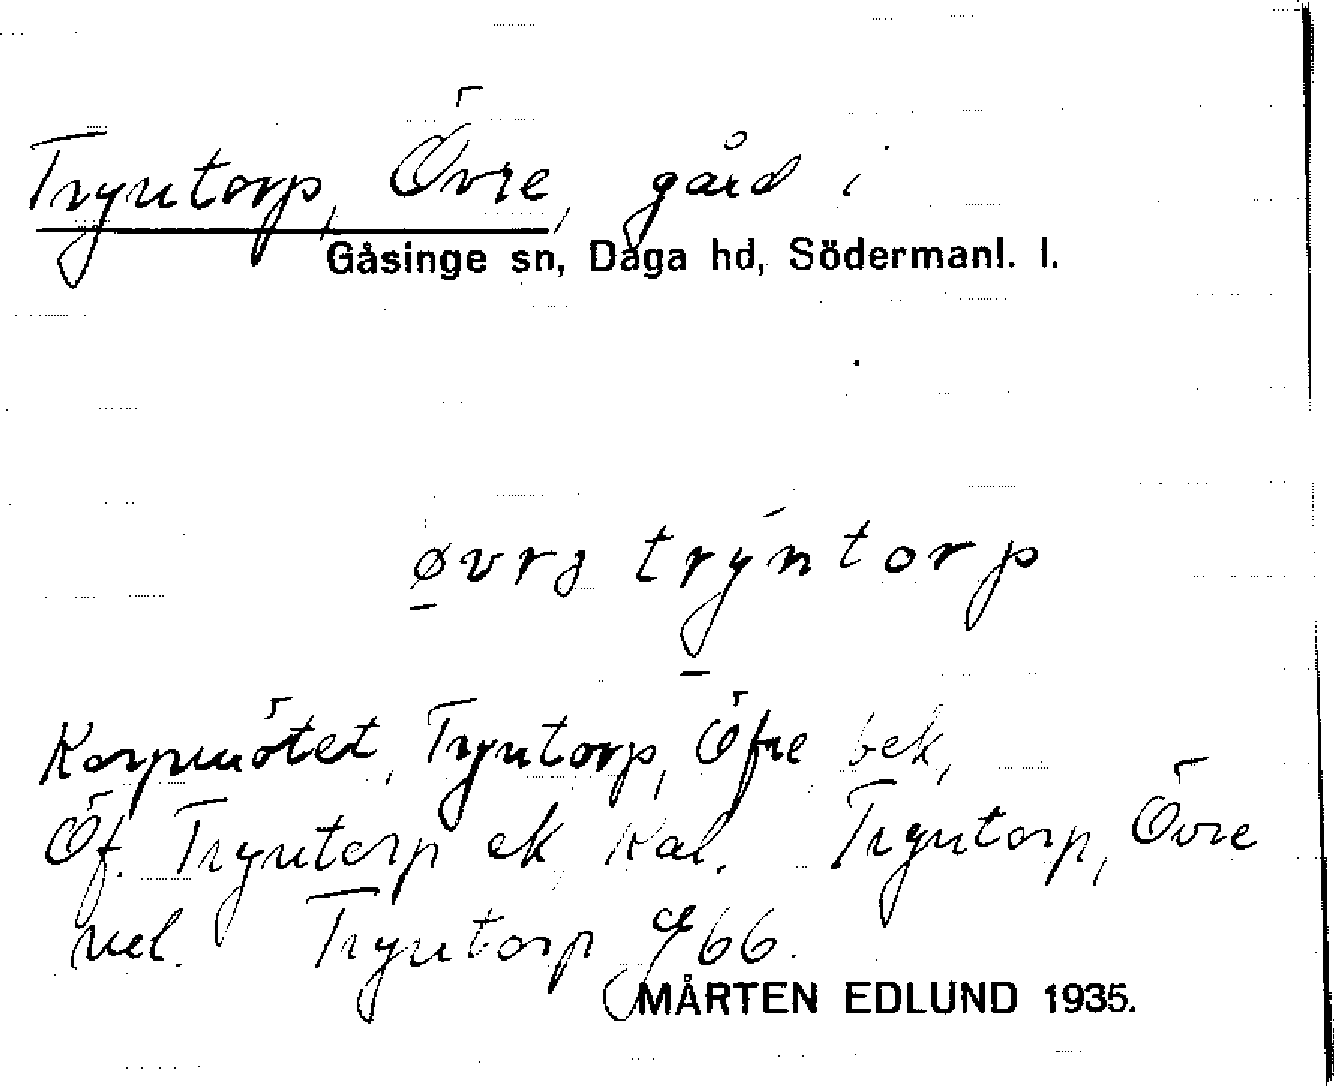 Tryntorp, Övre, gård i
Gåsinge sn, Daga hd, Södermanl. l.
øvrə trýntorp
Korpmötet, Tryntorp, Öfre bek,
Öf. Tryntorp ek, Kal. Tryntorp, Övre
vel. Tryntorp 66.
MÅRTEN EDLUND 1935.